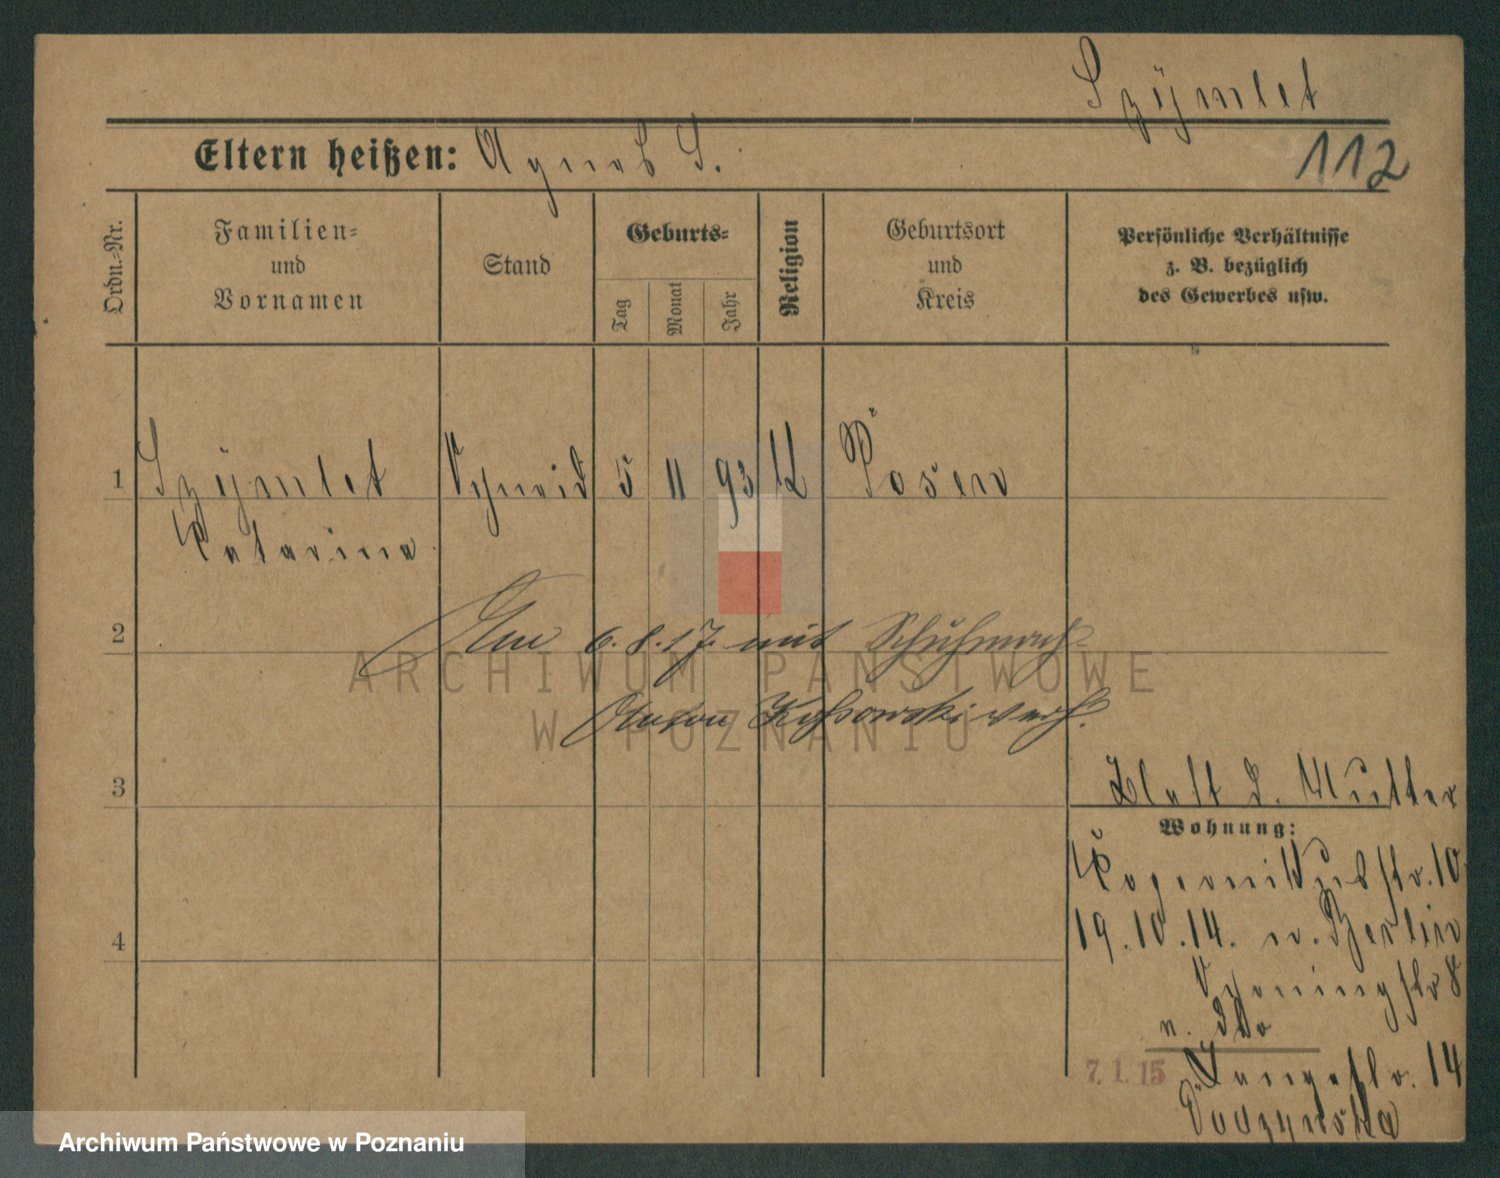 Szymlet
112
Eltern heißen: Agnes S.
Ordn.-Nr.
Familien-
und
Vornamen
Stand
Geburts-
Tag
Monat
Jahr
Religion
Geburtsort
und
Kreis
Persönliche Verhältnisse
z. B. bezüglich
des Gewerbes usw.
1 Szymlet Schneid 5 11 93 K Posen
Katarina
2 Am 6.8.17. mit Schuhmach-
Anton verh.
ARCHIWUM PAŃSTWOWE
W POZNANIU
3
Blatt d. Mutter
Wohnung:
Kopernikusstr. 10
19.10.14. n. Berlin
4
Schöningstr 8
7.1.15 Langestr. 14
Archiwum Państwowe w Poznaniu